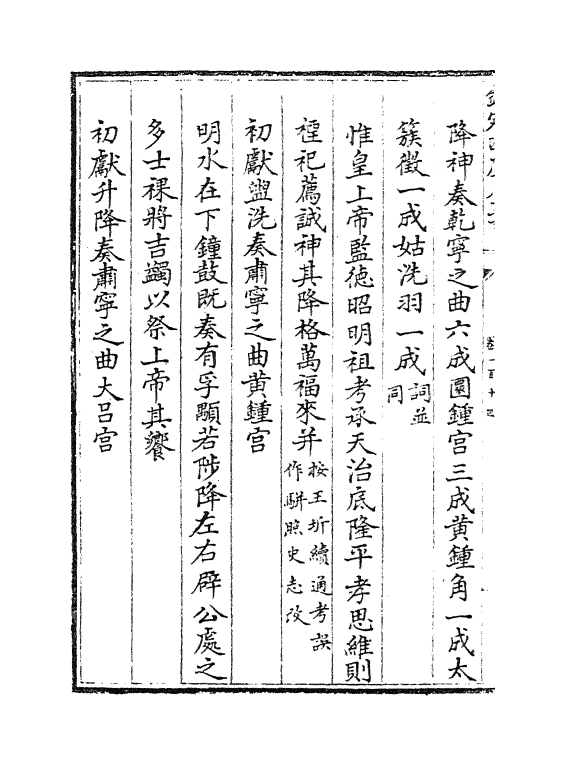 降神奏乾寧之曲六成圜鍾宮三成黄鍾角一成太
簇徵一成姑洗羽一成詞並同
惟皇上帝監徳昭明祖考承天治底隆平孝思維則
禋祀薦誠神其降格萬福來并按王圻續通考誤作駢照史志改
初獻盥洗奏肅寧之曲黄鍾宮
明水在下鐘鼓既奏有孚顒若陟降左右辟公處之
多士祼將吉蠲以祭上帝其饗
初獻升降奏肅寧之曲大呂宮